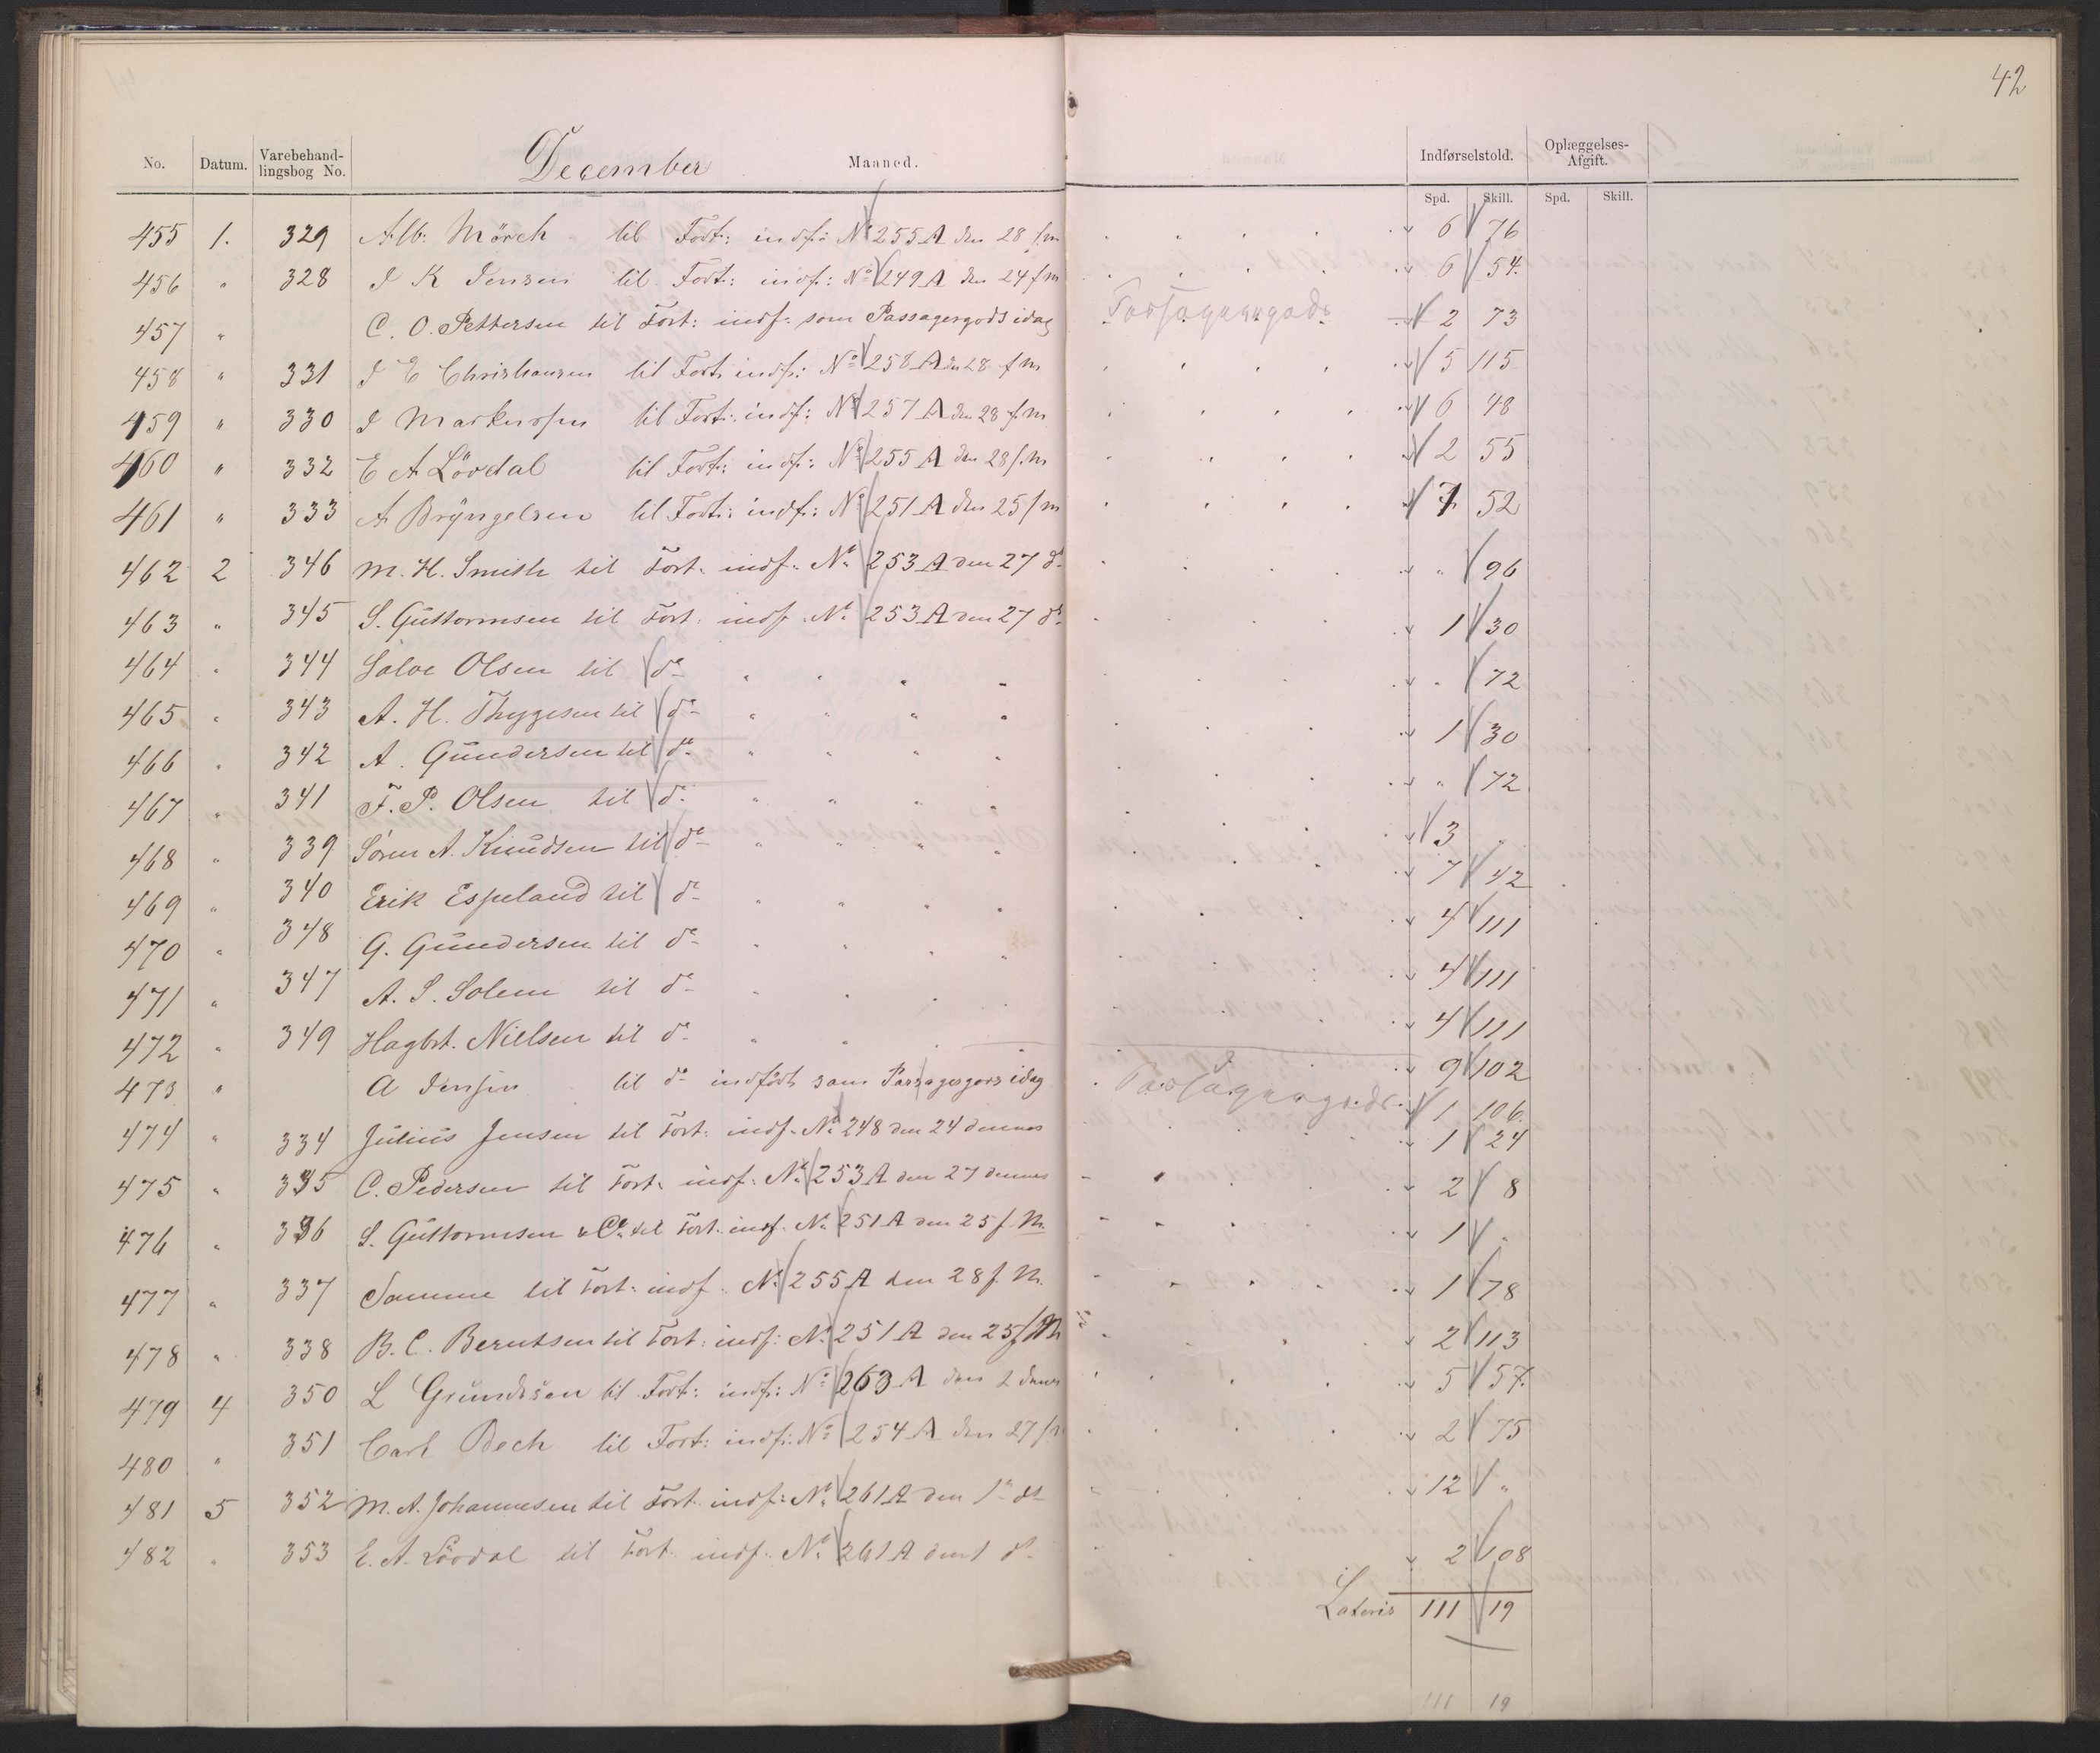 42
No. Datum. Varebehand-lingsbog No. December Maaned. Indførselstold. Oplæggelses-Afgift.
Spd. Skill. Spd. Skill.
455 1. 329 Alb. Mörch til Fort: indf: No 255 A den 28 f.m 6 76
456 " 328 J K Jensen til Fort: indf: No 249 A den 24 f m 6 54
457 " C. O. Pettersen til Fort: indf: som Passagergods idag Passagergods 2 73
458 " 331 J E Christiansen til Fort: indf: No 258 A den 28 f m 5 115
459 " 330 J Markussen til Fort: indf: No 257 A den 28 f. m 6 48
460 " 332 E A Lövdal til Fort: indf: No 255 A den 28 f. m 2 55
461 " 333 A Bryngelsen til Fort: indf: No 251 A den 25 f m 7 52
462 2 346 M. H. Smith til Fort: indf: No 253 A den 27 do " 96
463 " 345 S. Guttormsen til Fort: indf: No 253 A den 27 do 1 30
464 " 344 Salve Olsen til do " " " " " 72
465 " 343 A. H. Thygesen til do " " " " 1 30
466 " 342 A. Gundersen til do " " " " " 72
467 " 341 F. P. Olsen til do " " " " 3 "
468 " 339 Sören A. Knudsen til do " " " " 7 42
469 " 340 Erik Espeland til do " " " " 4 111
470 " 348 G. Gundersen til do " " " " 4 111
471 " 347 A. S. Solem til do " " " " 4 111
472 " 349 Hagbt. Nielsen til do " " " " 9 102
473 " A Jensen til do indfört som Passagergods idag Passagergods 1 106
474 " 334 Julius Jensen til Fort: indf: No 248 den 24 dennes 1 24
475 " 335 C. Pedersen til Fort: indf: No 253 A den 27 dennes 2 8
476 " 336 S. Guttormsen & Co. til Fort: indf: No 251 A den 25 f. M. 1 "
477 " 337 Samme til Fort: indf: No 255 A den 28 f. M. 1 78
478 " 338 B. C. Berntsen til Fort: indf: No 251 A den 25 f M 2 113
479 4 350 L Grundesen til Fort: indf: No 263 A den 2 dennes 5 57
480 " 351 Carl Bech til Fort: indf: No 254 A den 27 f 2 75
481 5 352 M. A. Johannesen til Fort: indf: No 261 A den 1 do 12 "
482 " 353 E. A. Lövdal til Fort: indf: No 261 A den 1 do 2 108
Lateris 111 19
111 19